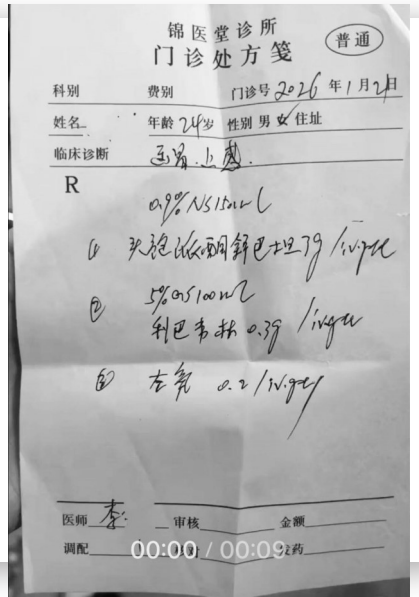 锦医堂诊所
门诊处方笺
普通
科别 费别 门诊号 2026 年 1 月 21日
姓名 年龄 24岁 性别 男 女 住址
临床诊断 上感.
R
0.9% NS 150ml
① 头孢哌酮舒巴坦 3g / iv.gtt
② 5% GS 100ml
利巴韦林 0.3g / iv.gtt
③ 左氧 0.2 / iv.gtt
医师 李 审核 金额
调配 发药
00:00 / 00:09